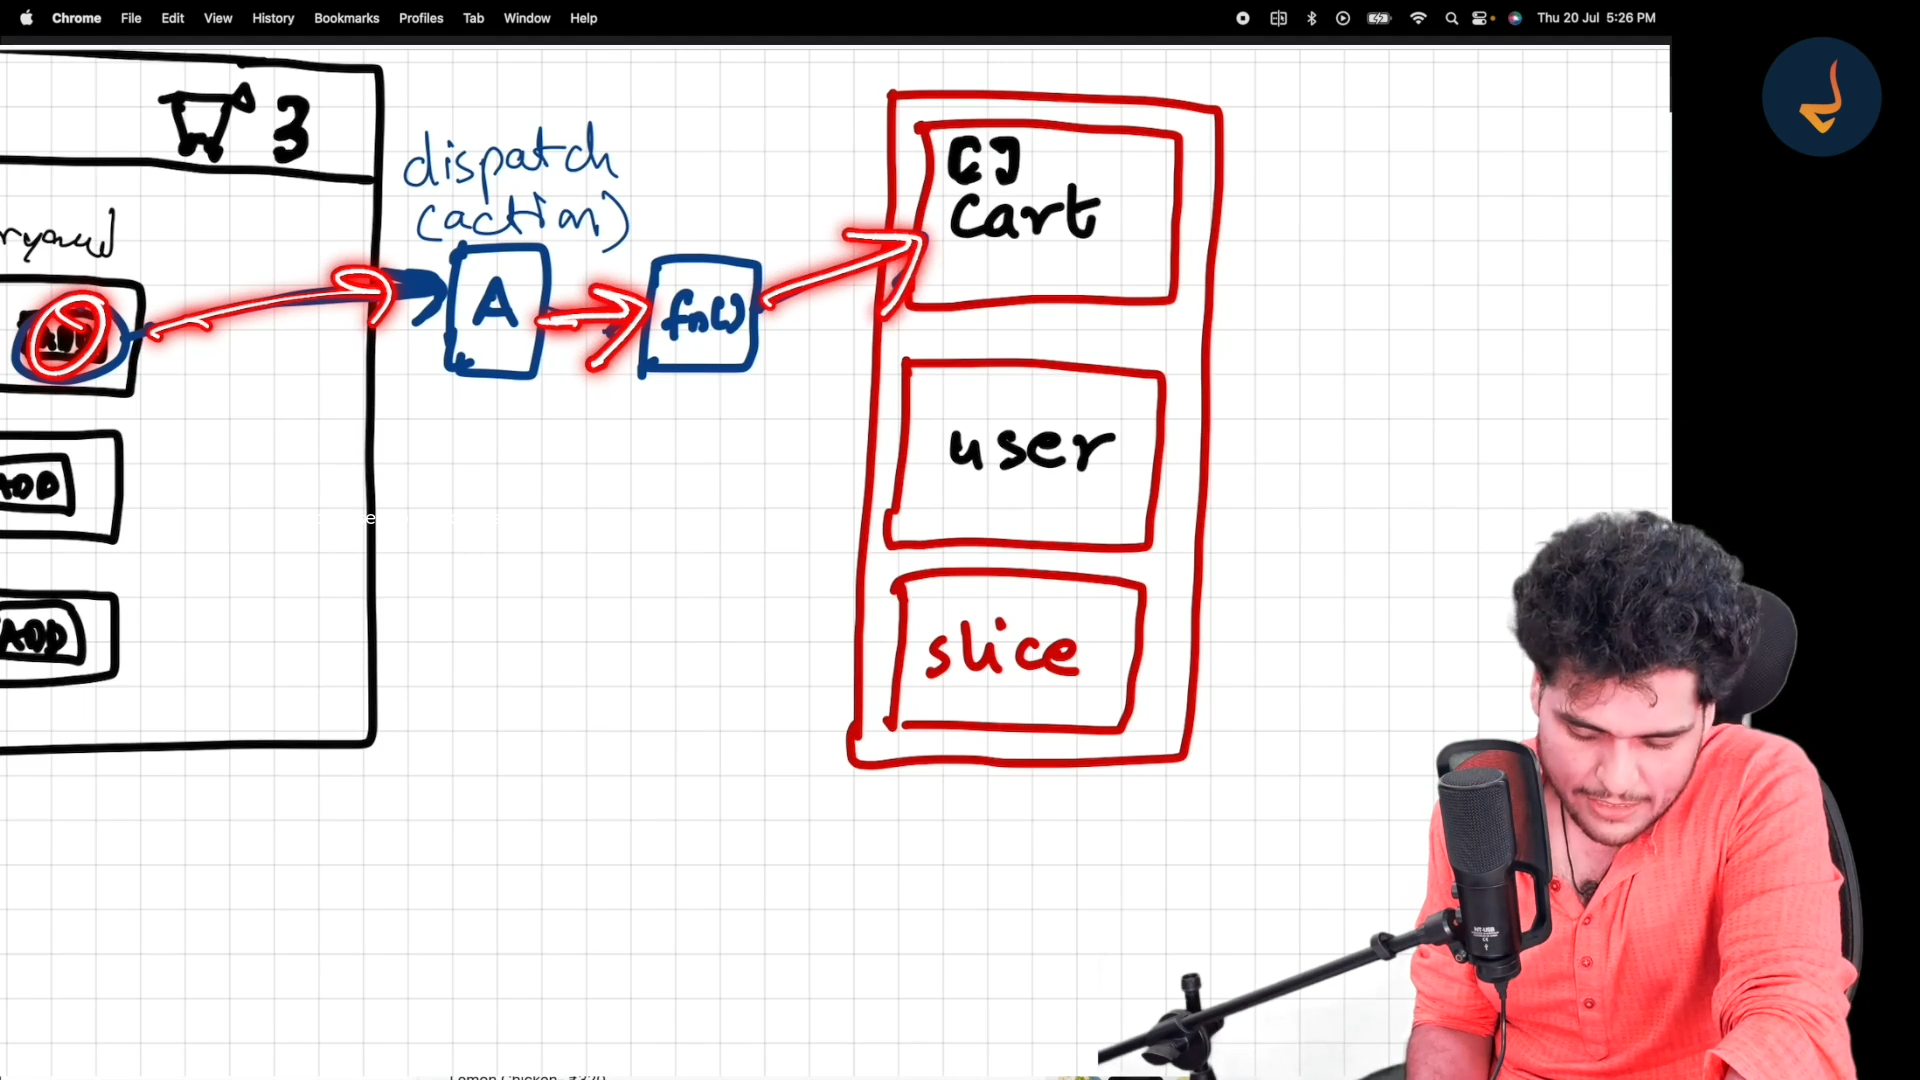 Chrome File Edit View History Bookmarks Profiles Tab Window Help Thu 20 Jul 5:26 PM
3
dispatch
(action)
A
fn()
[]
Cart
user
slice
ADD
ADD
NT-USB